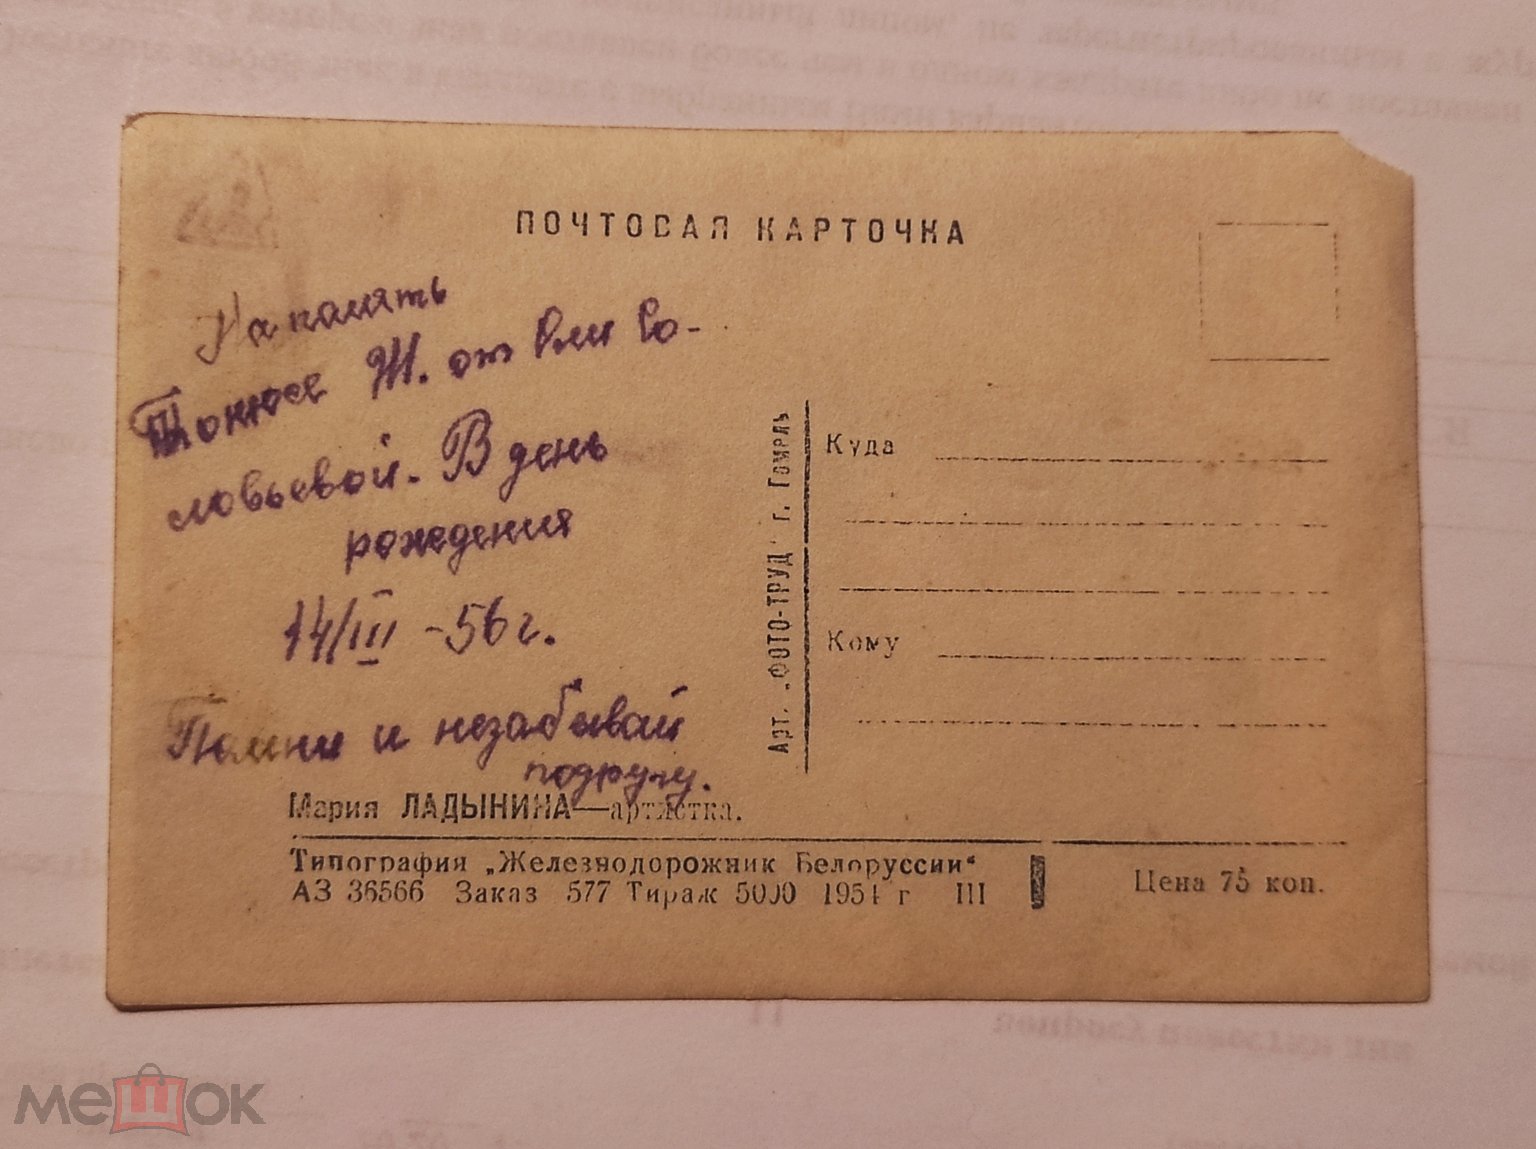 ПОЧТОВАЯ КАРТОЧКА
На память
Тонюсе Ж. от Вли Со-
ловьевой. В день
рождения
14/III -56 г.
Помни и незабывай
подругу.
Арт. „ФОТО-ТРУД" г. Гомель
Куда
Кому
Мария ЛАДЫНИНА—артистка.
Типография „Железнодорожник Белоруссии"
АЗ 36566 Заказ 577 Тираж 5000 1954 г III
Цена 75 коп.
мешок